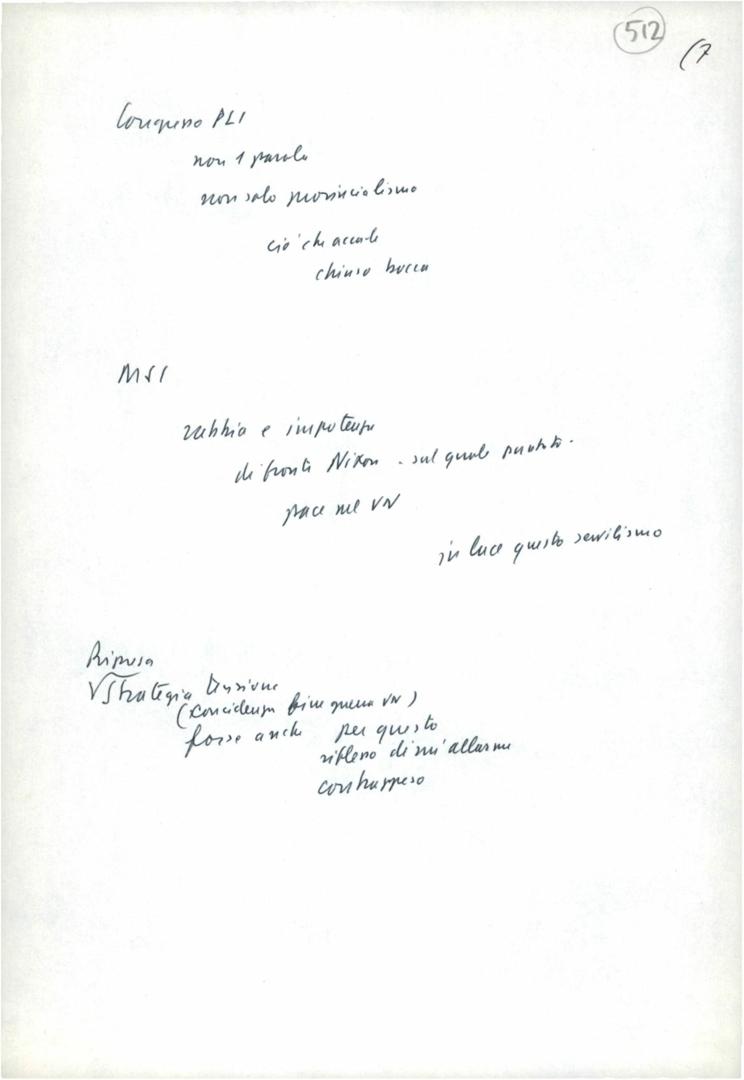 512
(7
Congresso PLI
non 1 parola
non solo provincialismo
ciò che accade
chiuso bocca
MSI
rabbia e impotenza
di fronte Nixon - sul quale puntato -
pace nel VN
in luce questo servilismo
Ripresa
Strategia tensione
(coincidenza fine guerra VN)
forse anche per questo
riflesso di un'allarme
contrappeso